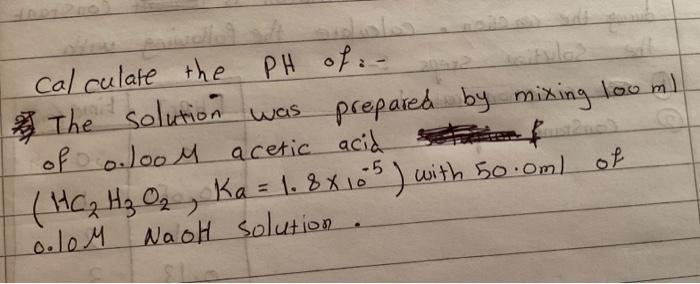 Calculate the PH of:-
The solution was prepared by mixing 100 ml
of 0.100 M acetic acid
(HC₂H₃O₂, Ka = 1.8×10⁻⁵) with 50.0ml of
0.10M NaOH solution.